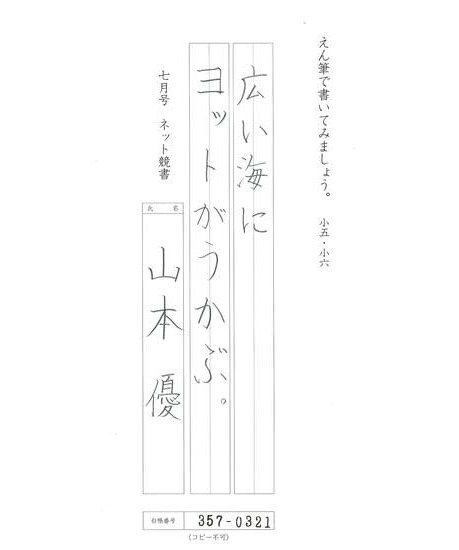 えん筆で書いてみましょう。 小五・小六
広い海に
ヨットがうかぶ。
七月号 ネット競書
氏 名
山本 優
台帳番号 357-0321
(コピー不可)